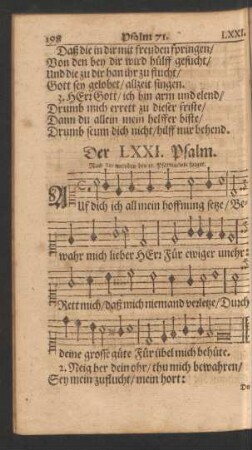 198
Psalm 71.
LXXI.
Daß die in dir mit freuden springen/
Von den bey dir wird hülff gesucht/
Und die zu dir han ihr zuflucht/
Gott sey gelobet/ allzeit singen.
3. HErr Gott/ ich bin arm und elend/
Drumb mich errett zu dieser friste/
Dann du allein mein helffer biste/
Drumb seum dich nicht/ hilff mir behend.
Der LXXI. Psalm.
Auf dich ich all mein hoffnung setze/ Be-
wahr mich lieber HErr Für ewiger unehr:
Rett mich/ daß mich niemand verletze/ Durch
deine grosse güte Für übel mich behüte.
2. Neig her dein ohr/ thu mich bewahren/
Sey mein zuflucht/ mein hort: